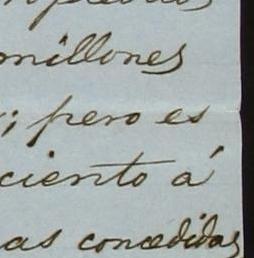 millones
; pero es
ciento á
as concedidas